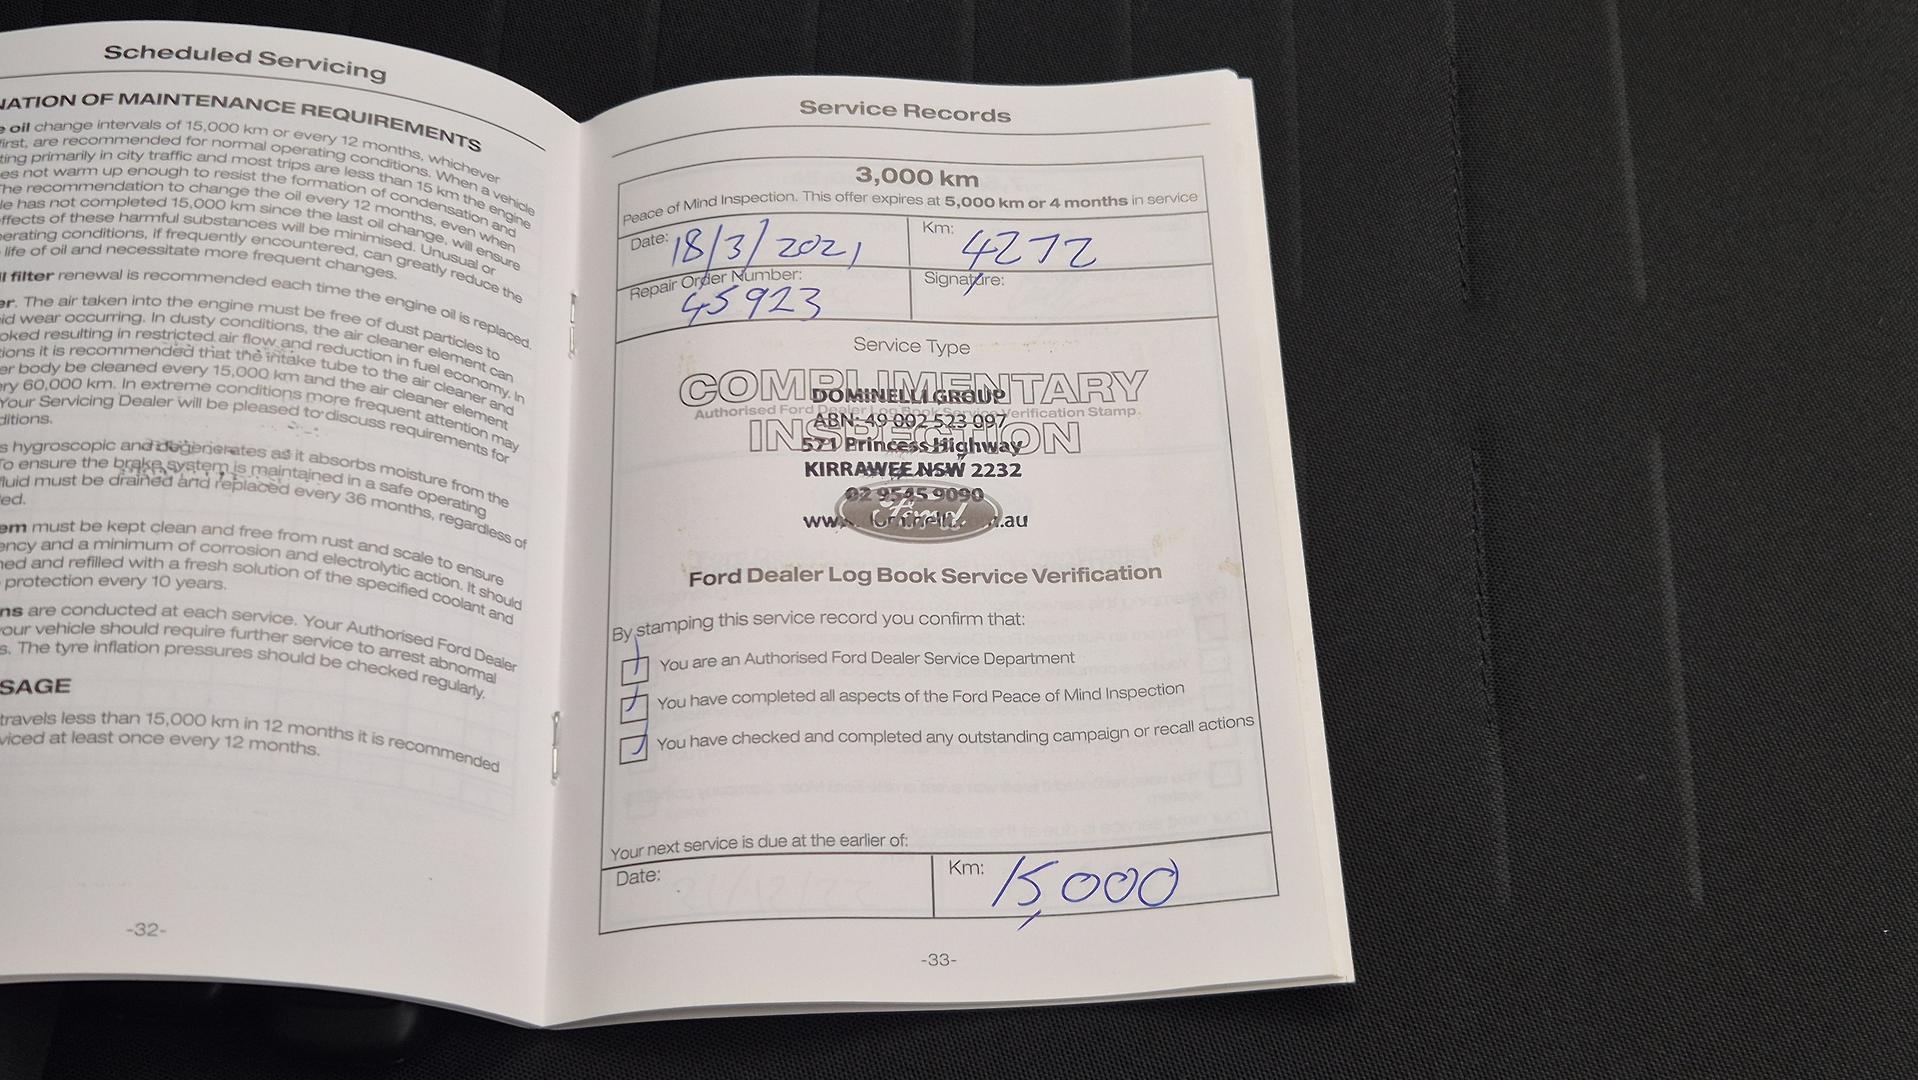 Scheduled Servicing
NATION OF MAINTENANCE REQUIREMENTS
e oil change intervals of 15,000 km or every 12 months, whichever
first, are recommended for normal operating conditions. When a vehicle
ting primarily in city traffic and most trips are less than 15 km the engine
es not warm up enough to resist the formation of condensation and
The recommendation to change the oil every 12 months, even when
le has not completed 15,000 km since the last oil change, will ensure
ffects of these harmful substances will be minimised. Unusual or
erating conditions, if frequently encountered, can greatly reduce the
life of oil and necessitate more frequent changes.
l filter renewal is recommended each time the engine oil is replaced.
er. The air taken into the engine must be free of dust particles to
id wear occurring. In dusty conditions, the air cleaner element can
oked resulting in restricted air flow and reduction in fuel economy. In
tions it is recommended that the intake tube to the air cleaner and
er body be cleaned every 15,000 km and the air cleaner element
ry 60,000 km. In extreme conditions more frequent attention may
Your Servicing Dealer will be pleased to discuss requirements for
ditions.
s hygroscopic and degenerates as it absorbs moisture from the
To ensure the brake system is maintained in a safe operating
fluid must be drained and replaced every 36 months, regardless of
ed.
em must be kept clean and free from rust and scale to ensure
ency and a minimum of corrosion and electrolytic action. It should
ned and refilled with a fresh solution of the specified coolant and
protection every 10 years.
ns are conducted at each service. Your Authorised Ford Dealer
our vehicle should require further service to arrest abnormal
s. The tyre inflation pressures should be checked regularly.
SAGE
travels less than 15,000 km in 12 months it is recommended
viced at least once every 12 months.
-32-
Service Records
3,000 km
Peace of Mind Inspection. This offer expires at 5,000 km or 4 months in service
Date: 18/3/2021
Km: 4272
Repair Order Number: 45923
Signature:
Service Type
COMPLIMENTARY
Authorised Ford Dealer Log Book Service Verification Stamp.
INSPECTION
DOMINELLI GROUP
ABN: 49 002 523 097
571 Princess Highway
KIRRAWEE NSW 2232
02 9545 9090
Ford
Ford Dealer Log Book Service Verification
By stamping this service record you confirm that:
You are an Authorised Ford Dealer Service Department
You have completed all aspects of the Ford Peace of Mind Inspection
You have checked and completed any outstanding campaign or recall actions
Your next service is due at the earlier of:
Date:
Km: 15,000
-33-